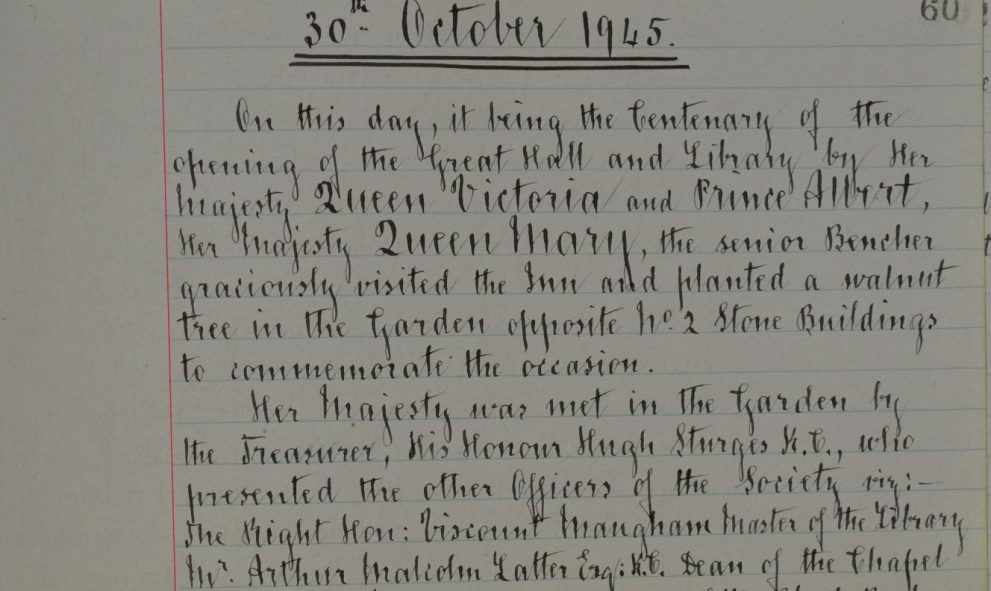 60
30th October 1945.
On this day, it being the Centenary of the
opening of the Great Hall and Library by Her
Majesty Queen Victoria and Prince Albert,
Her Majesty Queen Mary, the senior Bencher
graciously visited the Inn and planted a walnut
tree in the Garden opposite No. 2 Stone Buildings
to commemorate the occasion.
Her Majesty was met in the Garden by
the Treasurer, His Honour Hugh Sturges K.C., who
presented the other Officers of the Society viz:-
The Right Hon: Viscount Maugham Master of the Library
Mr. Arthur Malcolm Latter Esq: K.C. Dean of the Chapel